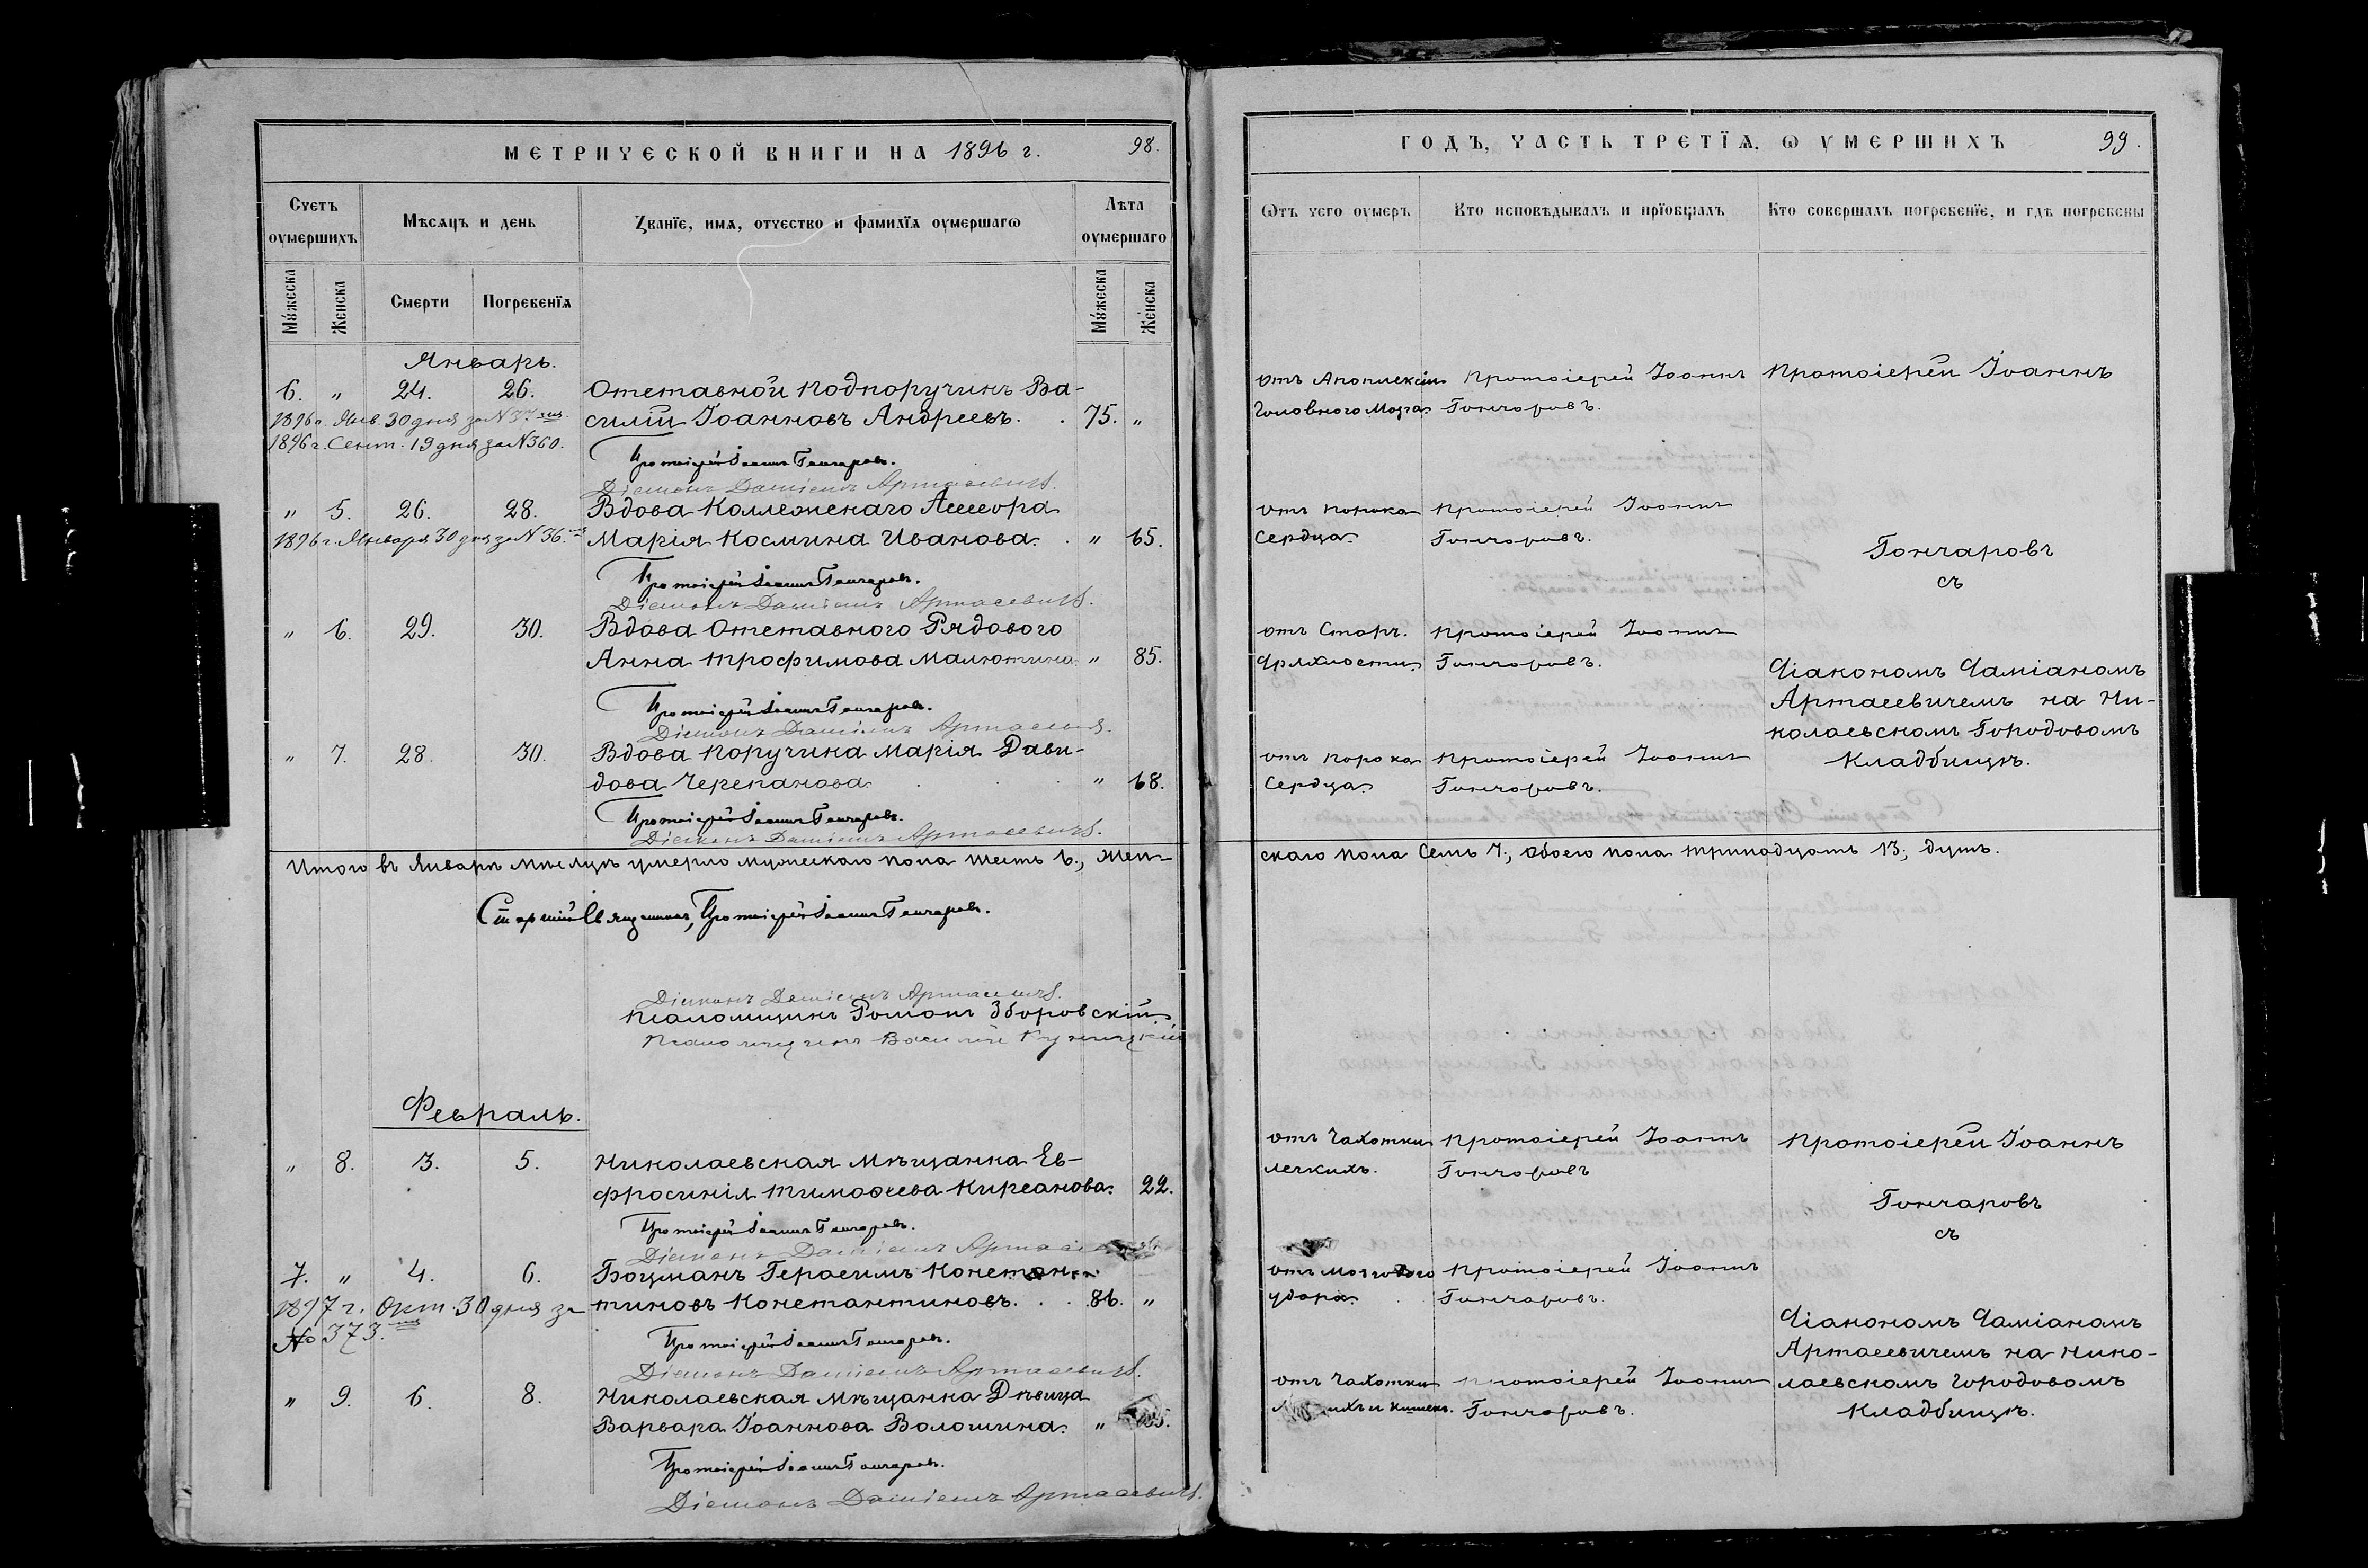 МЕТРИЧЕСКОЙ КНИГИ НА 1896 г.
98.
Счетъ оумершихъ
Мѣсяцъ и день
Званїе, имя, отчество и фамилїя оумершагѡ
Лѣта оумершаго
Мужеска
Женска
Смерти
Погребенїя
Мужеска
Женска
Январь.
6. „ 24. 26. Отставной Подпоручикъ Ва-
силій Іоанновъ Андреевъ. . 75. „
1896 г. Янв. 30 дня за N 37.
1896 г. Сент. 19 дня за N 360.
Протоіерей Іоаннъ Гончаровъ.
Діаконъ Даміанъ Артасевичъ.
„ 5. 26. 28. Вдова Коллежскаго Ассесора
1896 г. Января 30 дня за N 36.
Марія Космина Иванова. . „ 65.
Протоіерей Іоаннъ Гончаровъ.
Діаконъ Даміанъ Артасевичъ.
„ 6. 29. 30. Вдова Отставного Рядового
Анна Трофимова Малютина. „ 85.
Протоіерей Іоаннъ Гончаровъ.
Діаконъ Даміанъ Артасевичъ.
„ 7. 28. 30. Вдова Поручика Марія Дави-
дова Черепанова . . . „ 68.
Протоіерей Іоаннъ Гончаровъ.
Діаконъ Даміанъ Артасевичъ.
Итого въ Январѣ мѣсяцѣ умерло мужескаго пола шесть 6., жен-
Старшій Священникъ, Протоіерей Іоаннъ Гончаровъ.
Діаконъ Даміанъ Артасевичъ.
Псаломщикъ Романъ Зборовскій.
Псаломщикъ Василій
Февраль.
„ 8. 3. 5. Николаевская Мѣщанка Ев-
фросинія Тимоѳеева Кирсанова. 22.
Протоіерей Іоаннъ Гончаровъ.
Діаконъ Даміанъ
7. „ 4. 6. Боцманъ Герасимъ Констан-
тиновъ Константиновъ. . . 86. „
1897 г. Окт. 30 дня за
№ 373.
Протоіерей Іоаннъ Гончаровъ.
Діаконъ Даміанъ Артасевичъ.
„ 9. 6. 8. Николаевская Мѣщанка Дѣвица
Варвара Іоаннова Волошина. „
Протоіерей Іоаннъ Гончаровъ.
Діаконъ Даміанъ Артасевичъ.
ГОДЪ, ЧАСТЬ ТРЕТЇЯ, Ѡ УМЕРШИХЪ
99.
Ѿтъ чего оумеръ
Кто исповѣдывалъ и прїобщалъ
Кто совершалъ погребенїе, и гдѣ погребены
отъ Апоплексіи Протоіерей Іоаннъ Протоіерей Іоаннъ
Головного Мозга. Гончаровъ.
отъ Порока Протоіерей Іоаннъ
Сердца. Гончаровъ.
Гончаровъ
съ
отъ Старч. Протоіерей Іоаннъ
Дряхлости. Гончаровъ.
Діакономъ Даміаномъ
Артасевичемъ на Ни-
колаевскомъ Городовомъ
отъ Порока Протоіерей Іоаннъ Кладбищѣ.
Сердца. Гончаровъ.
скаго пола Семь 7., обоего пола тринадцать 13; душъ.
отъ Чахотки Протоіерей Іоаннъ Протоіерей Іоаннъ
легкихъ. Гончаровъ
Гончаровъ
съ
отъ Мозгового Протоіерей Іоаннъ
удара. Гончаровъ.
Діакономъ Даміаномъ
Артасевичемъ на Нико-
отъ Чахотки Протоіерей Іоаннъ лаевскомъ Городовомъ
и кишекъ. Гончаровъ. Кладбищѣ.